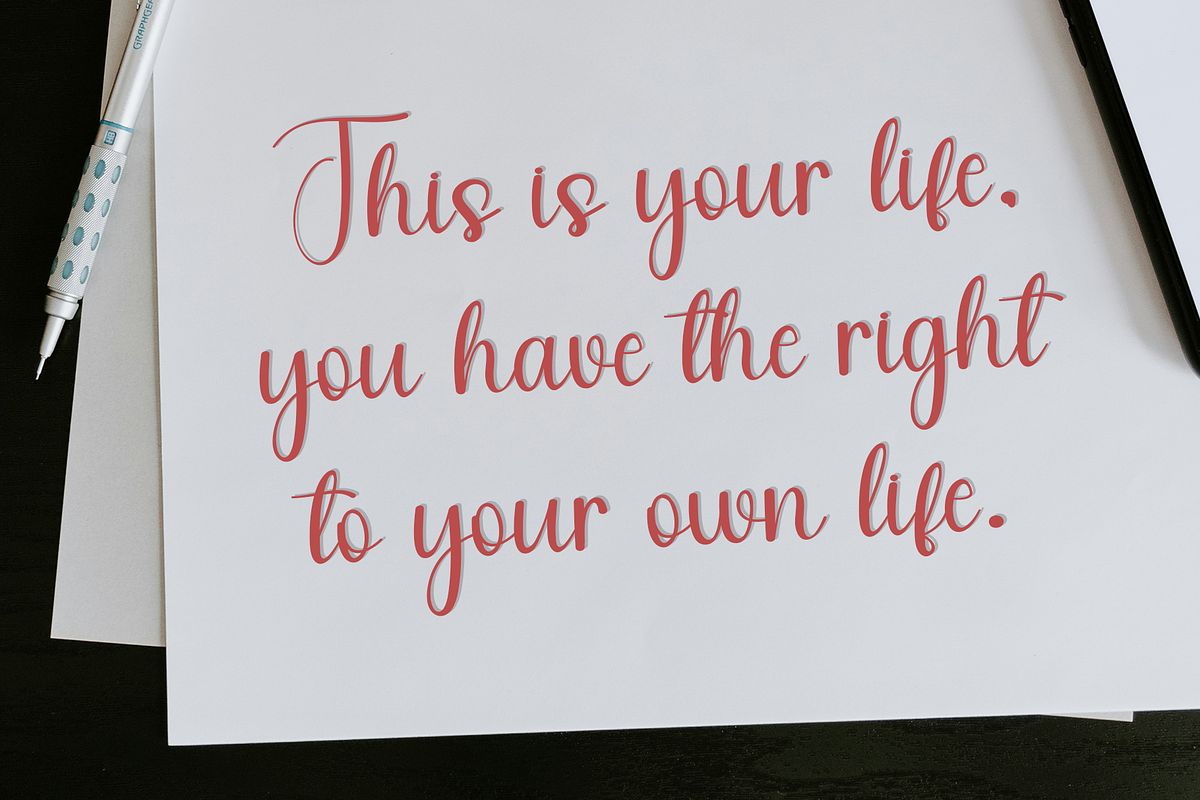 GRAPHGEAR
This is your life.
you have the right
to your own life.